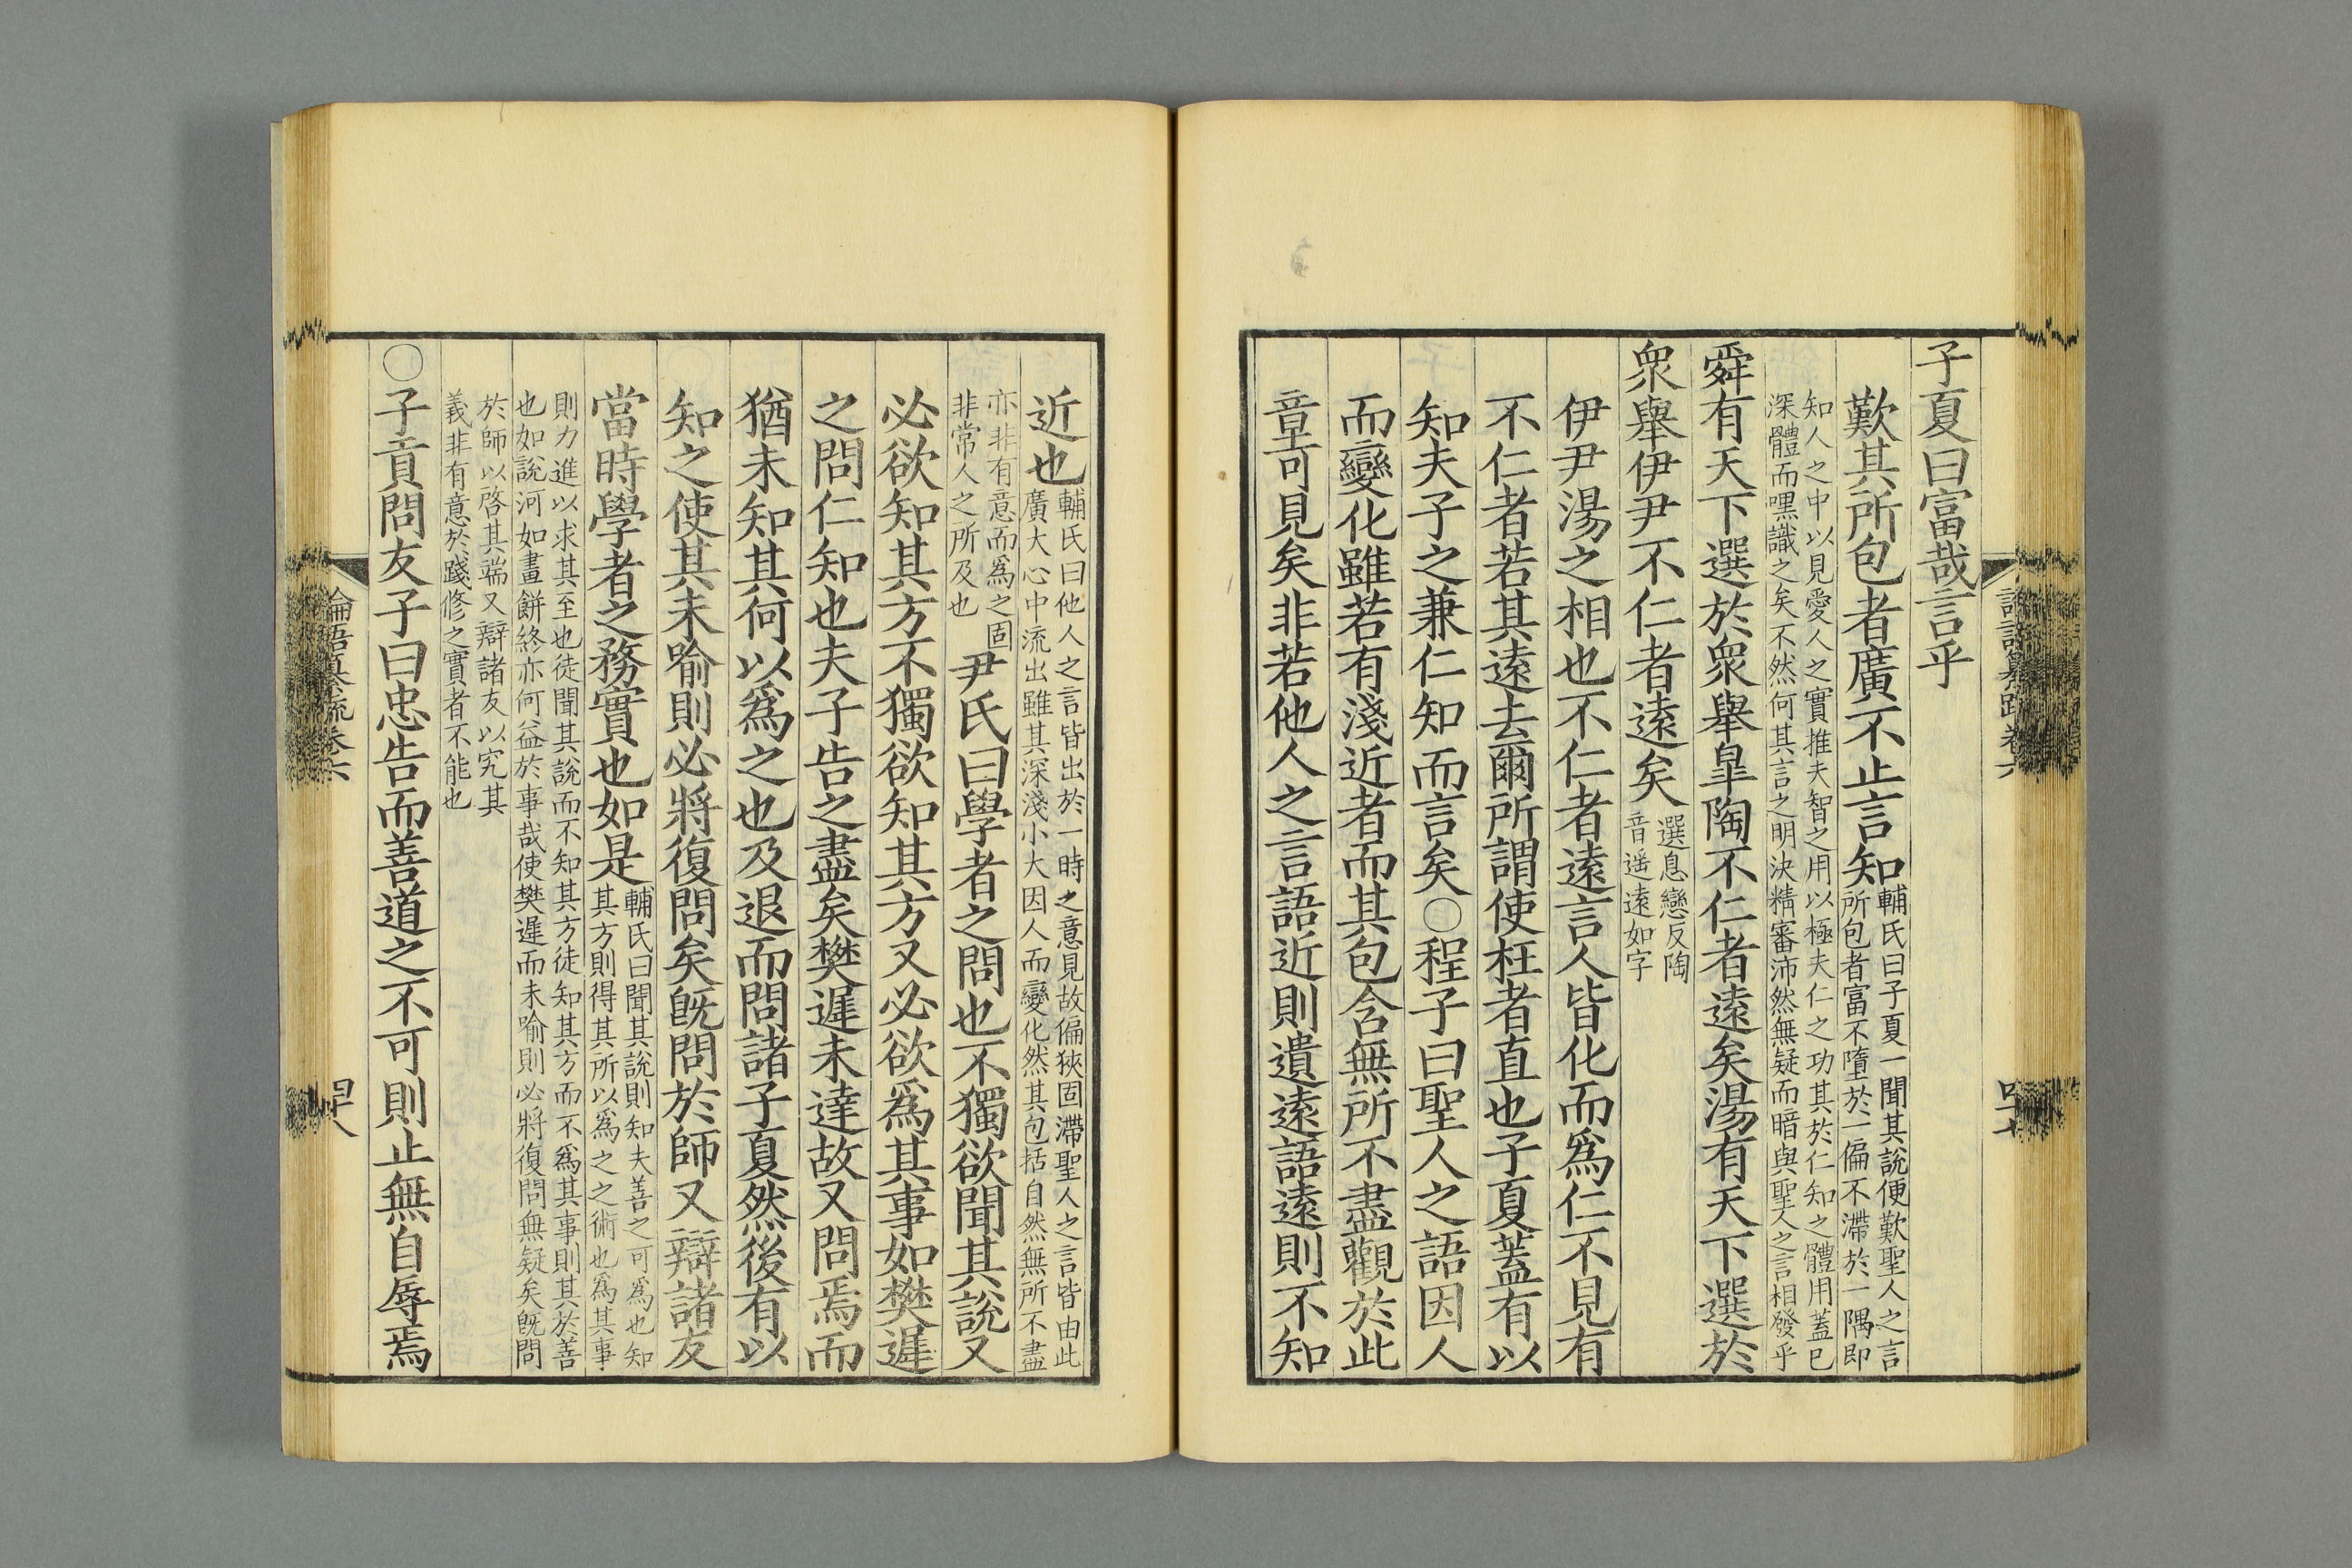 子夏曰富哉言乎
歎其所包者廣不止言知
輔氏曰子夏一聞其說便歎聖人之言
所包者富不墮於一偏不滯於一隅即
知人之中以見愛人之實推夫智之用以極夫仁之功其於仁知之體用蓋已
深體而嘿識之矣不然何其言之明決精審沛然無疑而暗與聖人之言相發乎
舜有天下選於衆舉臯陶不仁者遠矣湯有天下選於
衆舉伊尹不仁者遠矣
選息戀反陶
音遥遠如字
伊尹湯之相也不仁者遠言人皆化而爲仁不見有
不仁者若其遠去爾所謂使枉者直也子夏蓋有以
知夫子之兼仁知而言矣○程子曰聖人之語因人
而變化雖若有淺近者而其包含無所不盡觀於此
章可見矣非若他人之言語近則遺遠語遠則不知
近也
輔氏曰他人之言皆出於一時之意見故偏狹固滯聖人之言皆由此
廣大心中流出雖其深淺小大因人而變化然其包括自然無所不盡
亦非有意而為之固
非常人之所及也
尹氏曰學者之問也不獨欲聞其說又
必欲知其方不獨欲知其方又必欲爲其事如樊遲
之問仁知也夫子告之盡矣樊遲未達故又問焉而
猶未知其何以爲之也及退而問諸子夏然後有以
知之使其未喻則必將復問矣旣問於師又辯諸友
當時學者之務實也如是
輔氏曰聞其說則知夫善之可爲也知
其方則得其所以爲之之術也爲其事
則力進以求其至也徒聞其說而不知其方徒知其方而不爲其事則其於善
也如說河如畫餅終亦何益於事哉使樊遲而未喻則必將復問無疑矣旣問
於師以啓其端又辯諸友以究其
義非有意於踐修之實者不能也
○子貢問友子曰忠告而善道之不可則止無自辱焉
論語纂疏卷六